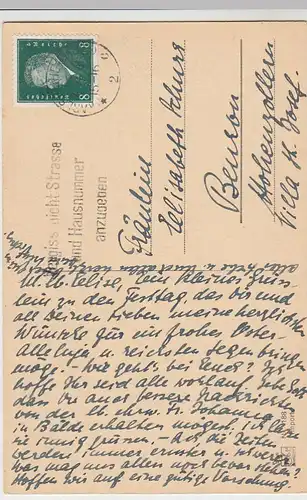 8 8
Deutsches Reich
Vergiss nicht Strasse
und Hausnummer
anzugeben
Fräulein
Elisabeth
Beuron
Hohenzollern
Villa St. Josef
M. lb. Elise, Dein kleines Grüss-
lein zu den Festtag das dir und
all Deinen lieben meine herzlichen
Wünsche für ein frohes Oster-
alleluja u. reichsten Segen bring
möge. - Wie geht's bei Euch? Ich
hoffe Ihr seid alle wohlauf.
dass Du auch bessere Nachrichten
von der lb. ehrw. Sr. Johanna
in Bälde erhalten mögest. Ich lasse
sie innig grüssen. - Ach, die Zeiten
werden immer ernster u. schwerer
was mag uns allen noch bevor stehen
Hoffen wir auf eine gütige Vorsehung.